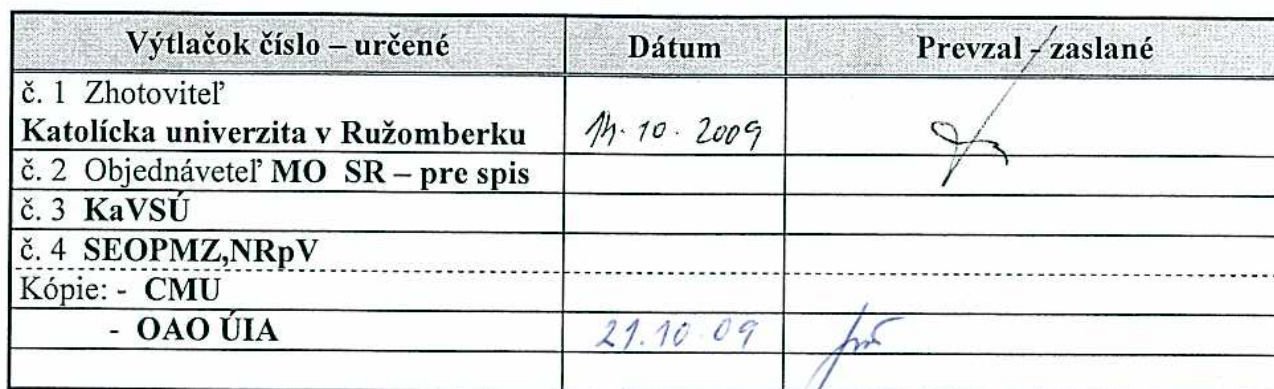 Výtlačok číslo – určené Dátum Prevzal - zaslané
č. 1 Zhotoviteľ
Katolícka univerzita v Ružomberku 14. 10. 2009
č. 2 Objednáveteľ MO SR – pre spis
č. 3 KaVSÚ
č. 4 SEOPMZ,NRpV
Kópie: - CMU
- OAO ÚIA 21.10.09